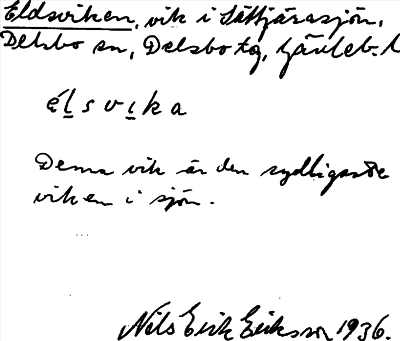 Eldsviken, vik i Sättjärasjön,
Delsbo sn, Delsbo tg, Gävleb. l
élsvika
Denna vik är den sydligaste
viken i sjön.
Nils Erik Eriksson 1936.